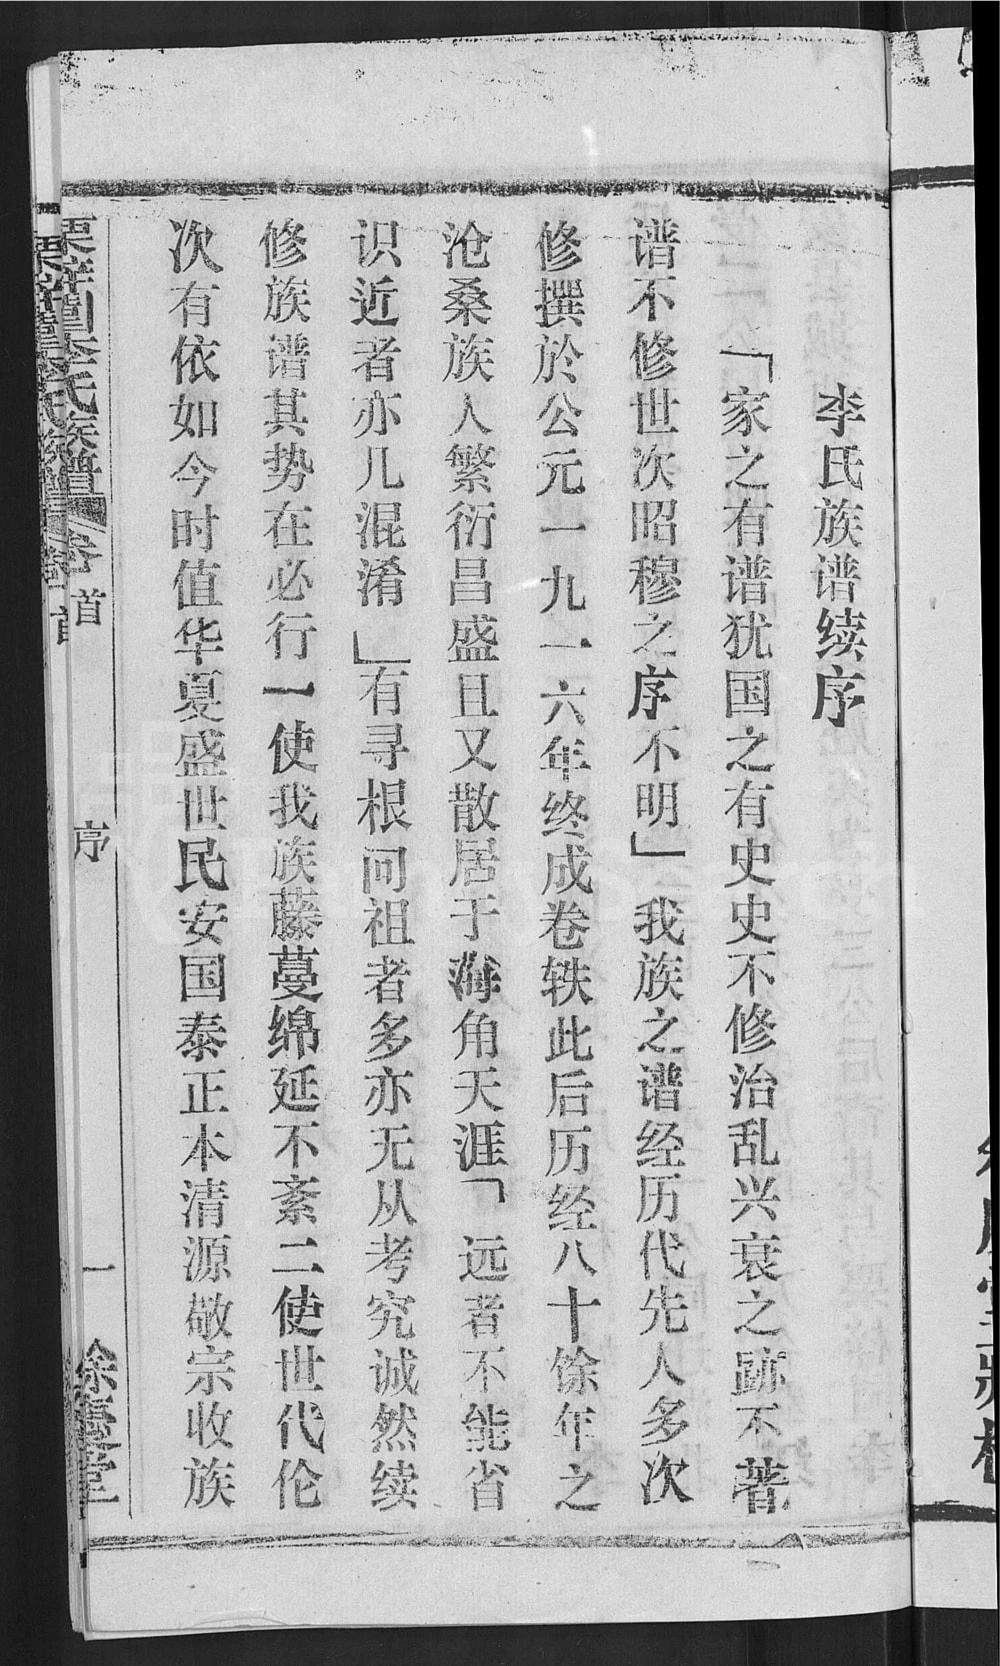 李氏族谱续序
「家之有谱犹国之有史史不修治乱兴衰之跡不著
谱不修世次昭穆之序不明」我族之谱经历代先人多次
修撰於公元一九一六年终成卷轶此后历经八十馀年之
沧桑族人繁衍昌盛且又散居于海角天涯「远者不能省
识近者亦几混淆」有寻根问祖者多亦无从考究诚然续
修族谱其势在必行一使我族藤蔓绵延不紊二使世代伦
次有依如今时值华夏盛世民安国泰正本清源敬宗收族
李氏族譜 卷首 序 一